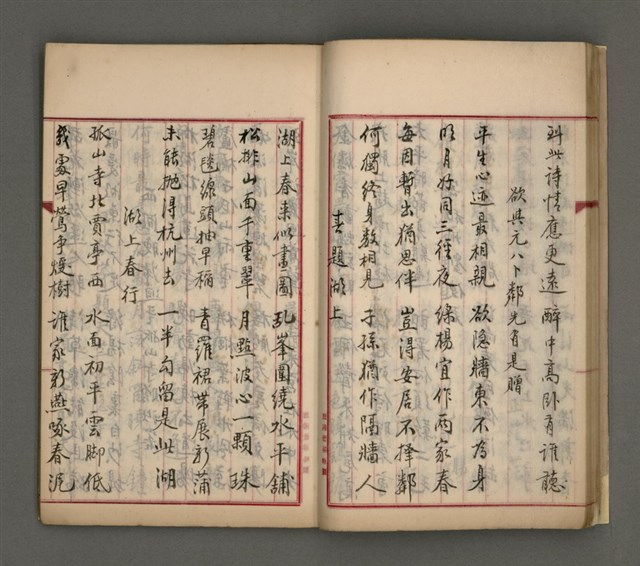 到此詩情應更遠 醉中高臥有誰聽
欲與元八卜鄰先有是贈
平生心迹最相親 欲隱牆東不為身
明月好同三徑夜 綠楊宜作兩家春
每因暫出猶思伴 豈得安居不擇鄰
何獨終身數相見 子孫猶作隔牆人
春題湖上
湖上春來似畫圖 乱峯圍繞水平舖
松排山面千重翠 月點波心一顆珠
碧毯線頭抽早稲 青羅裙帶展新蒲
未能拋得杭州去 一半勾留是此湖
湖上春行
孤山寺北賈亭西 水面初平雲脚低
幾處早鶯爭煖樹 誰家新燕啄春泥